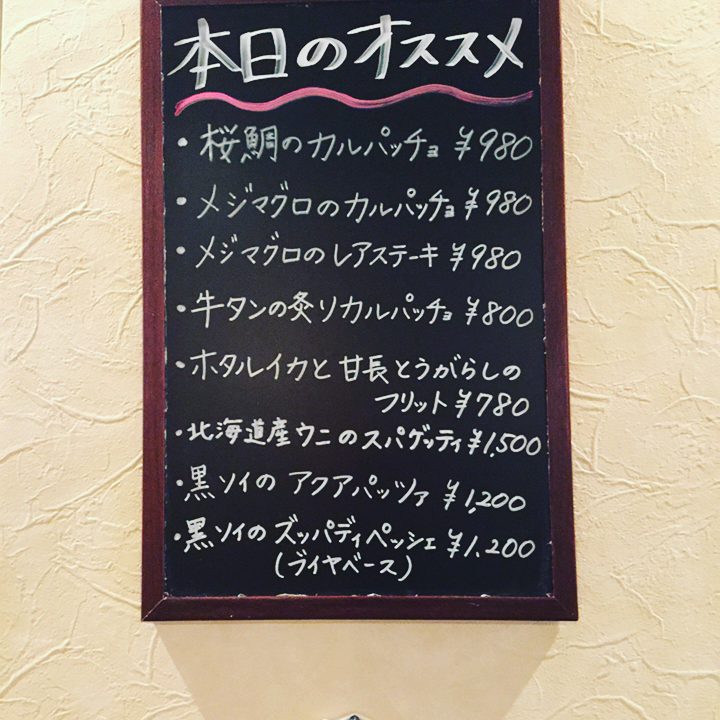 本日のオススメ
・桜鯛のカルパッチョ ¥980
・メジマグロのカルパッチョ ¥980
・メジマグロのレアステーキ ¥980
・牛タンの炙りカルパッチョ ¥800
・ホタルイカと甘長とうがらしの
フリット ¥780
・北海道産ウニのスパゲッティ ¥1,500
・黒ソイの アクアパッツァ ¥1,200
・黒ソイの ズッパディペッシェ ¥1.200
(ブイヤベース)